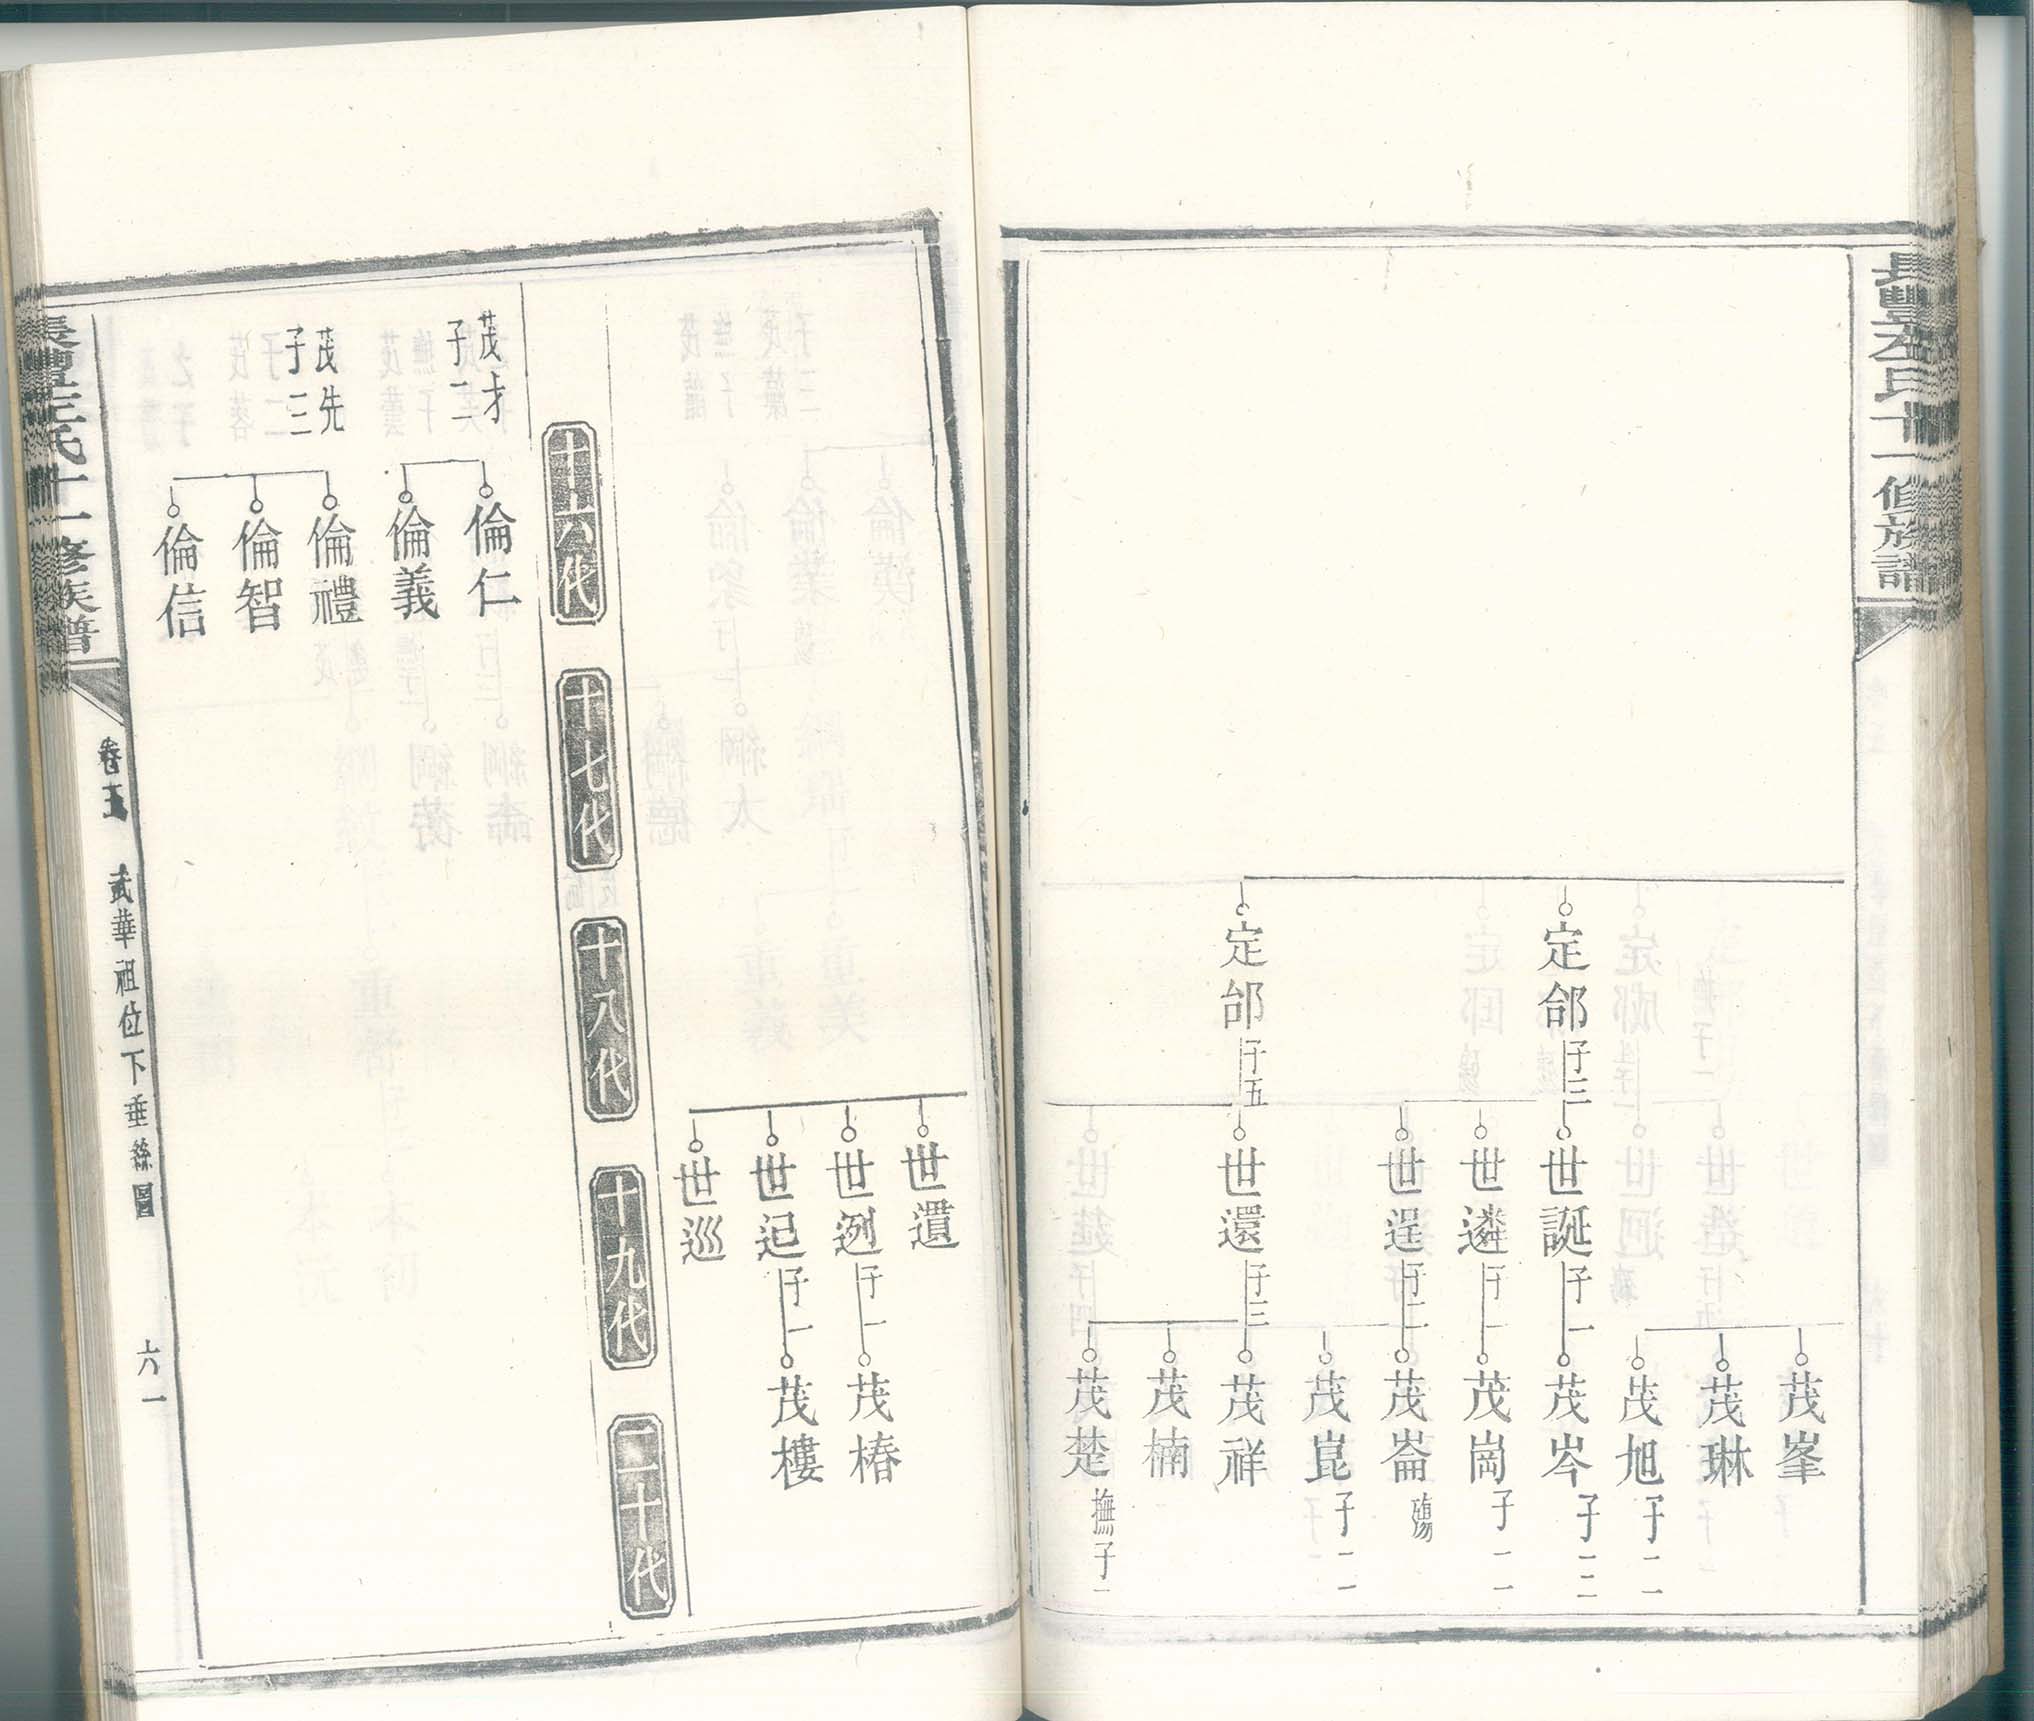 長豐左氏十一修族譜
定郃
子三
定邰
子五
世誕
子一
世遴
子一
世逞
子二
世還
子三
茂峯
茂琳
茂旭
子二
茂岑
子三
茂崗
子二
茂崙
殤
茂崑
子二
茂祥
茂楠
茂楚
撫子一
世遺
世迾
子一
世迡
子一
世巡
茂椿
茂樓
十六代
十七代
十八代
十九代
二十代
茂才
子二
倫仁
倫義
茂先
子三
倫禮
倫智
倫信
氏十一修族譜
武華祖位下垂絲圖
六一